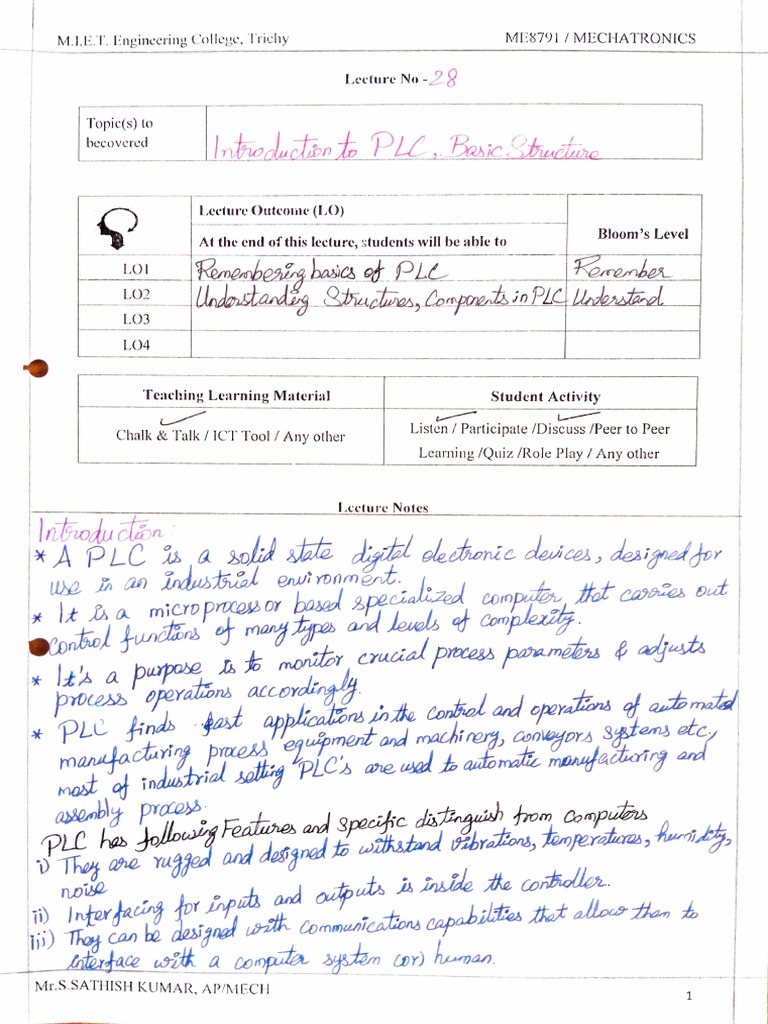 M.I.E.T. Engineering College, Trichy ME8791 / MECHATRONICS
Lecture No - 28
Topic(s) to becovered Introduction to PLC, Basic Structure
Lecture Outcome (LO) Bloom's Level
At the end of this lecture, students will be able to
LO1 Remembering basics of PLC Remember
LO2 Understanding Structures, Components in PLC Understand
LO3
LO4
Teaching Learning Material Student Activity
Chalk & Talk / ICT Tool / Any other Listen / Participate /Discuss /Peer to Peer
Learning /Quiz /Role Play / Any other
Lecture Notes
Introduction:
* A PLC is a solid state digital electronic devices, designed for
use in an industrial environment.
* It is a microprocessor based specialized computer that carries out
control functions of many types and levels of complexity.
* It's a purpose is to monitor crucial process parameters & adjusts
process operations accordingly.
* PLC finds applications in the control and operations of automated
manufacturing process equipment and machinery, conveyors systems etc.,
most of industrial setting PLC's are used to automatic manufacturing and
assembly process.
PLC has following Features and specific distinguish from computers
i) They are rugged and designed to withstand vibrations, temperatures, humidity,
noise
ii) Interfacing for inputs and outputs is inside the controller.
iii) They can be designed with communications capabilities that allow than to
interface with a computer system (or) human.
Mr.S.SATHISH KUMAR, AP/MECH 1